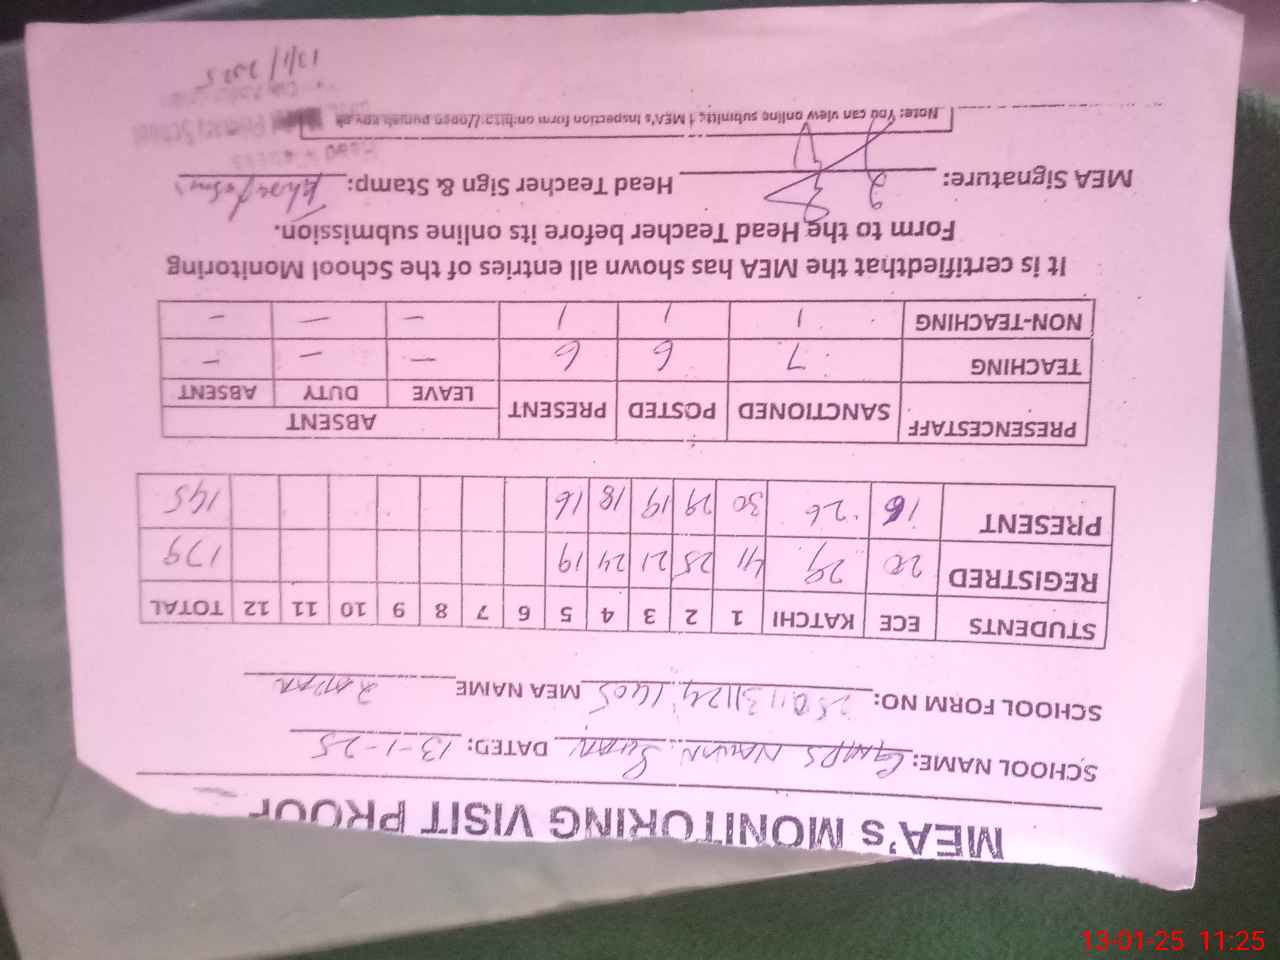 MEA's MONITORING VISIT PROOF
SCHOOL NAME: GMPS DATED: 13-1-25
SCHOOL FORM NO: MEA NAME
STUDENTS ECE KATCHI 1 2 3 4 5 6 7 8 9 10 11 12 TOTAL
REGISTRED 20 29 41 25 21 24 19 179
PRESENT 16 26 30 29 19 18 16 145
PRESENCESTAFF SANCTIONED POSTED PRESENT ABSENT
LEAVE DUTY ABSENT
TEACHING 7 6 6 — — —
NON-TEACHING 1 1 1 — — —
It is certifiedthat the MEA has shown all entries of the School Monitoring
Form to the Head Teacher before its online submission.
MEA Signature: Head Teacher Sign & Stamp:
Note: You can view online submitted MEA's Inspection form on http://open.punjab.gov.pk
13/1/2025
13-01-25 11:25